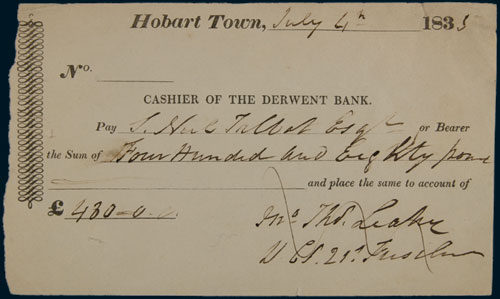 Hobart Town, July 4th 1835
No.
CASHIER OF THE DERWENT BANK.
Pay Talbot Esqr or Bearer
the Sum of Four Hundred and Eighty pound
and place the same to account of
£ 480-0.
Thos. Leake
21st